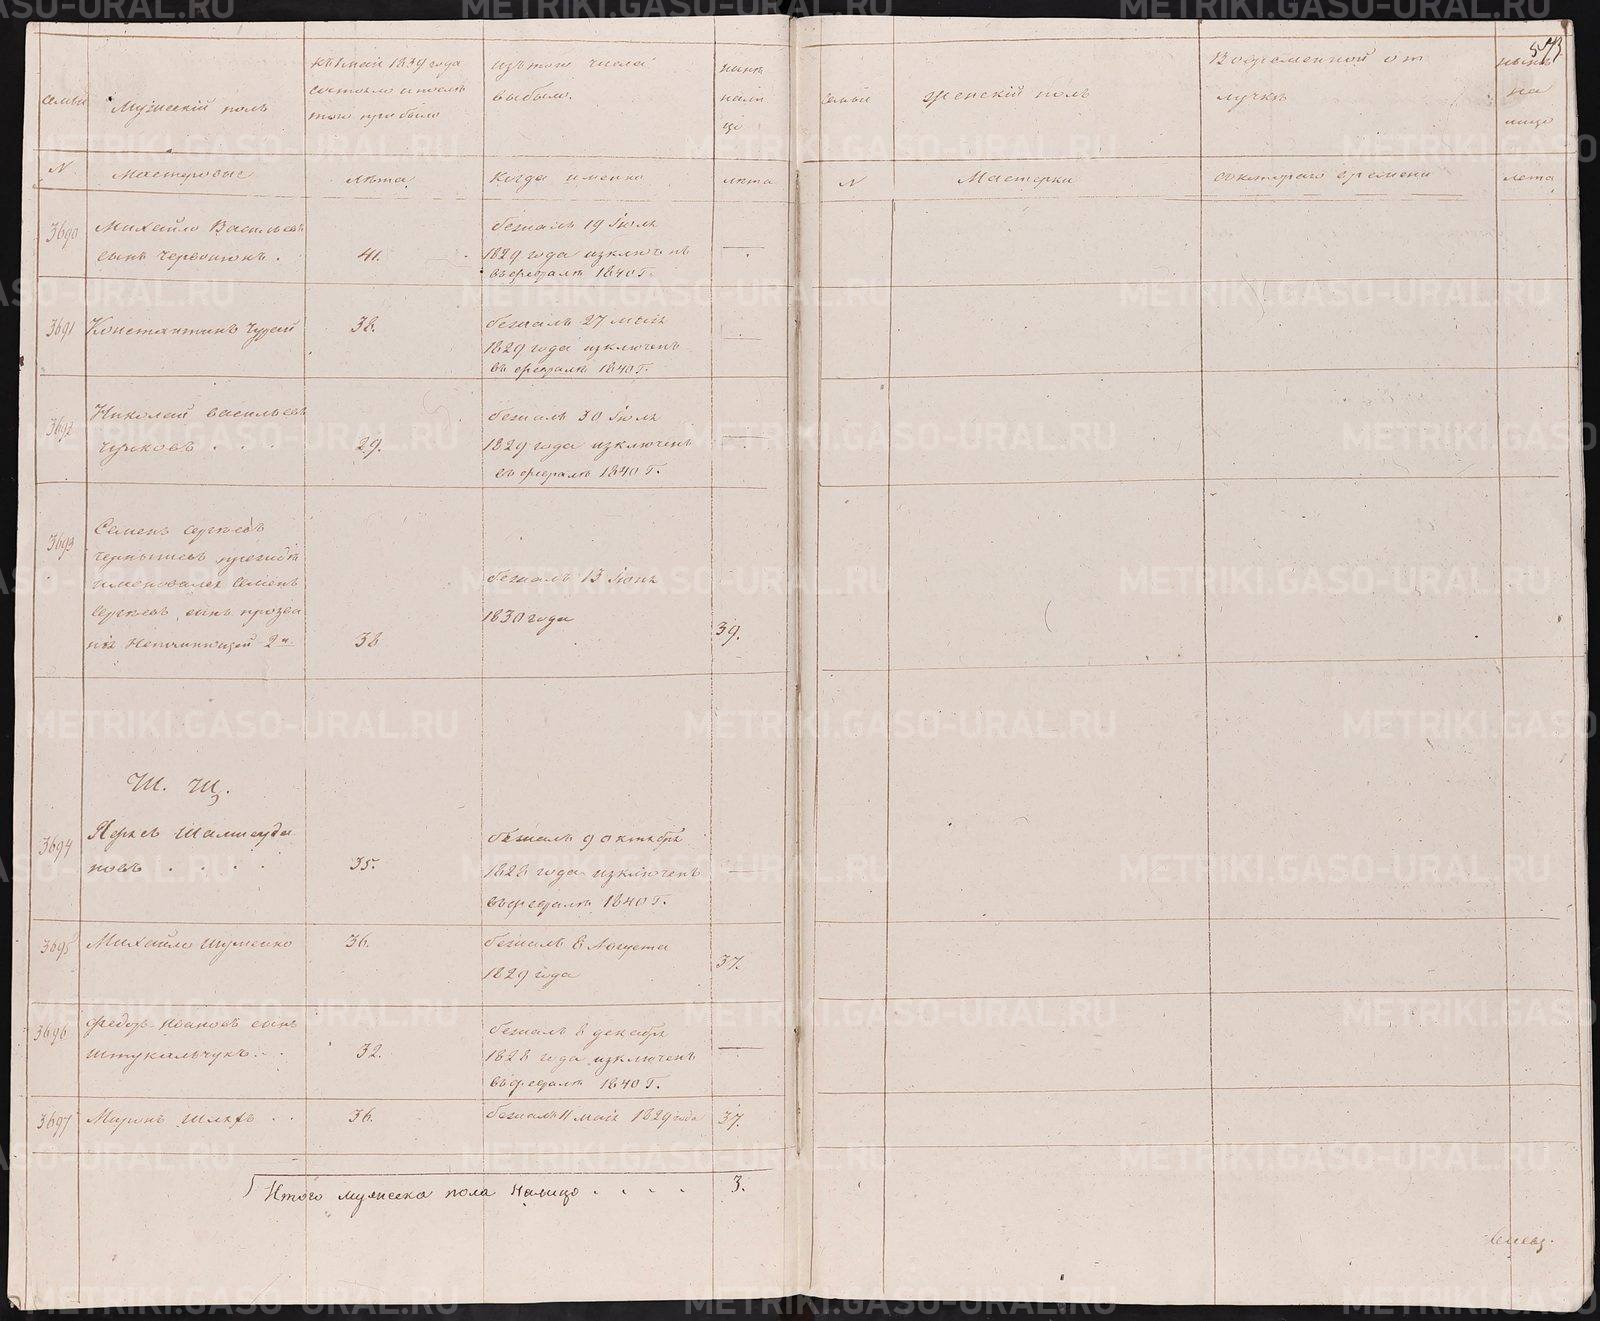 METRIKI.GASO-URAL.RU
573
семьи
Мужескій полъ
къ 1 маія 1839 года
состояло и послѣ
того прибыло
изъ того числа
выбыло.
нынѣ
нали
цо
N
Мастеровые
лѣта
когда именно
лѣта
3690
Михайло Васильевъ
сынъ
41.
бежалъ 19 Іюля
1829 года изключенъ
въ февралѣ 1840 г.
3691
Константинъ
38.
бежалъ 27 маія
1829 года изключенъ
въ февралѣ 1840 г.
3692
Николай Васильевъ
29.
бежалъ 30 Іюля
1829 года изключенъ
въ февралѣ 1840 г.
3693
Семенъ Сергѣевъ
Чернышевъ прежде
именовался Семенъ
Сергѣевъ сынъ прозва
нія 2й
38
бежалъ 13 Іюня
1830 года
39.
Ш. Щ.
3694
новъ . . . .
35.
бежалъ 9 октября
1828 года изключенъ
въ февралѣ 1840 г.
3695
Михайло Шуменко
36.
бежалъ 6 Августа
1829 года
37.
3696
Федоръ Ивановъ сынъ
Штукальчукъ . .
32.
бежалъ 8 декабря
1828 года изключенъ
въ февралѣ 1840 г.
3697
Миронъ . .
36.
бежалъ 11 маія 1829 года
37.
Итого мужеска пола налицо . . . .
3.
семьи
женскій полъ
Во временной от
лучкѣ
нынѣ
на
лицо
N
Мастерки
съ котораго времени
лета